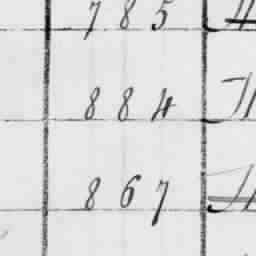 785
884
867